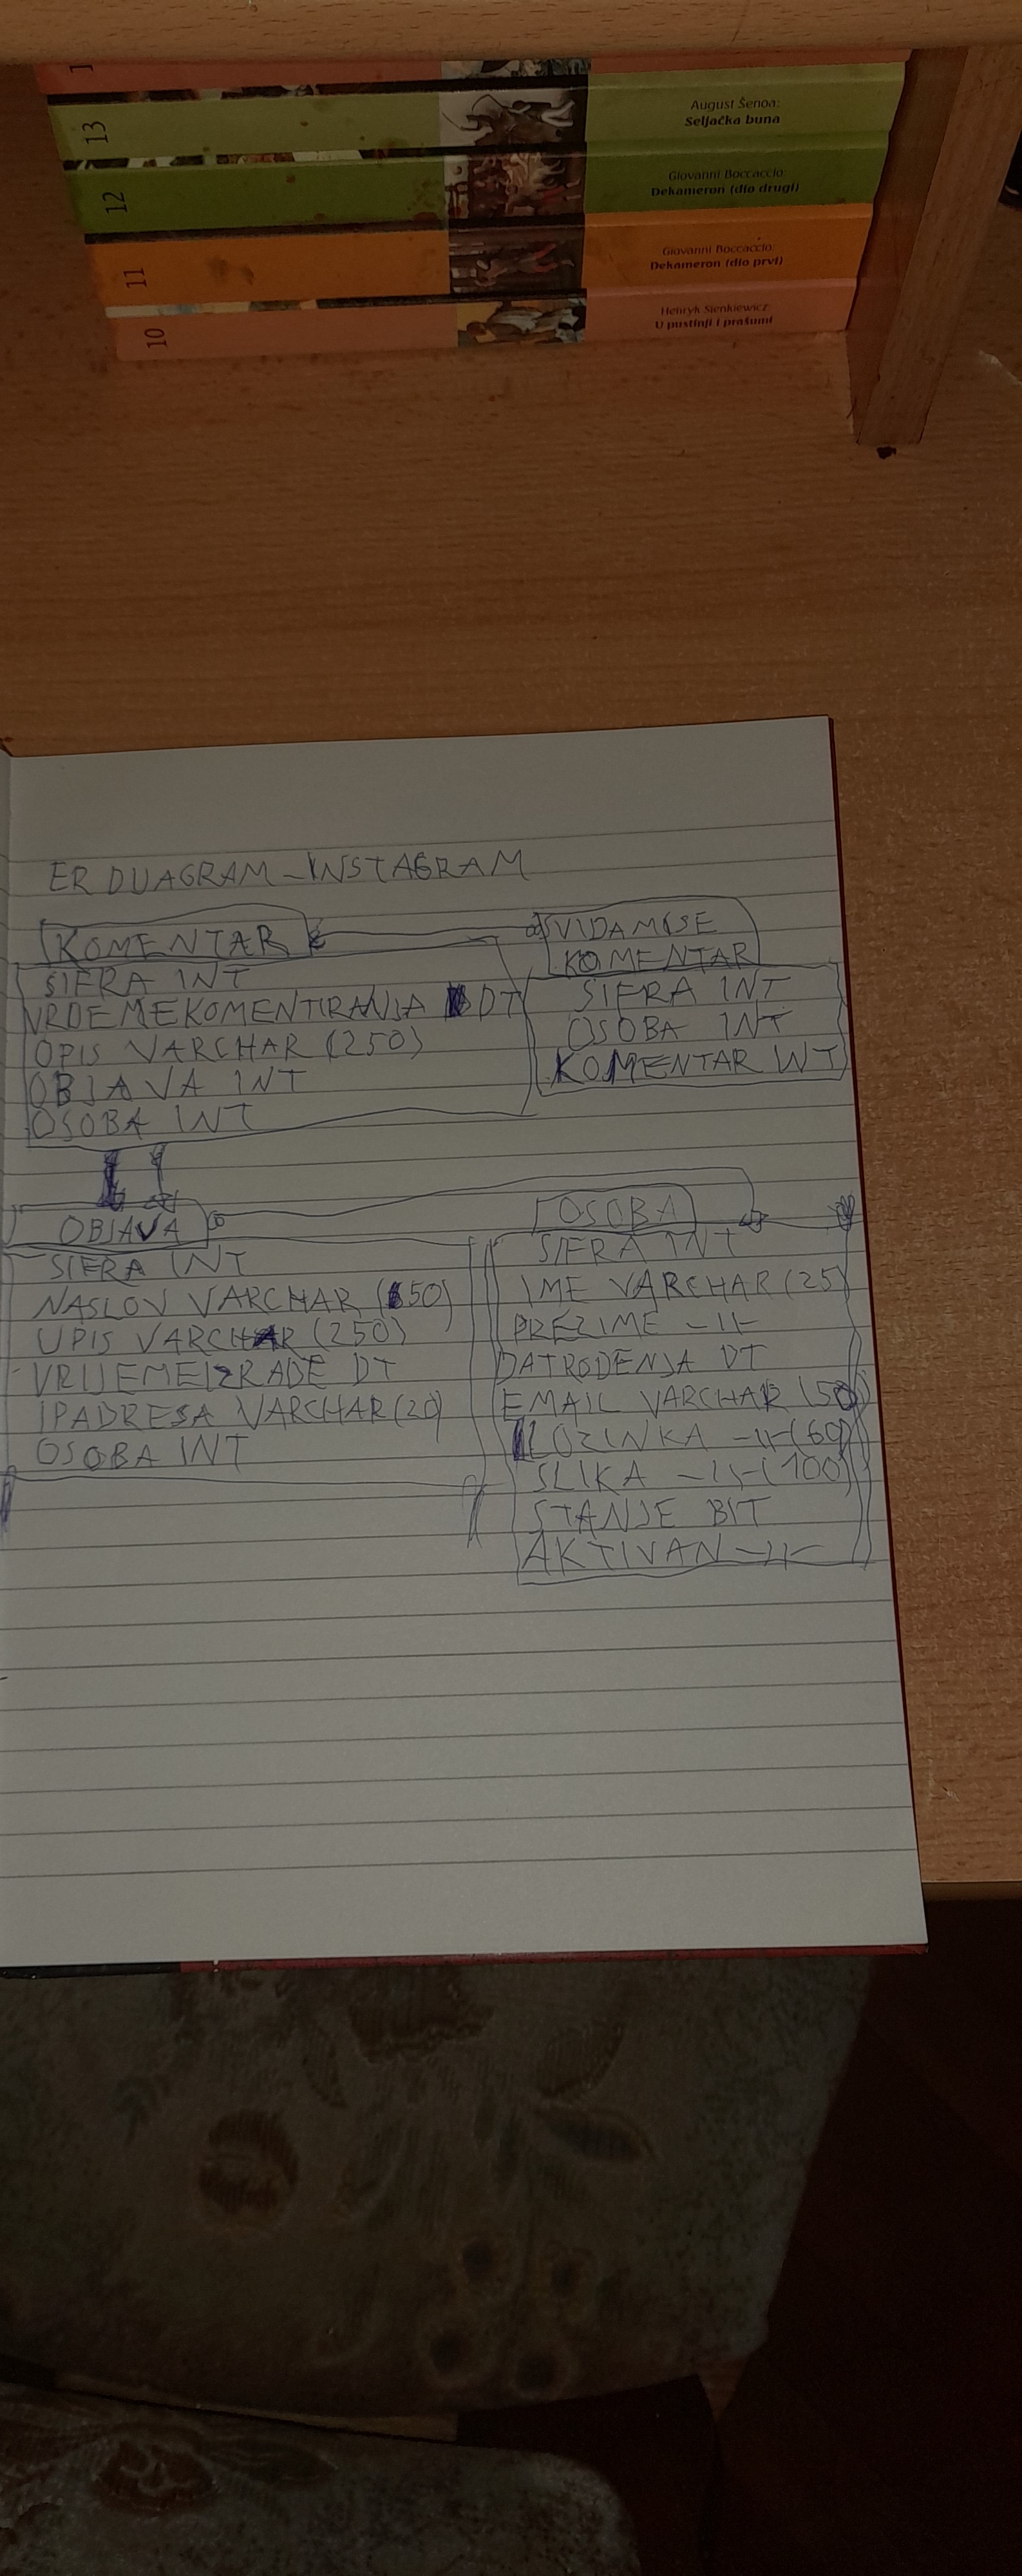 1
13
August Šenoa:
Seljačka buna
12
Giovanni Boccaccio:
Dekameron (dio drugi)
11
Giovanni Boccaccio:
Dekameron (dio prvi)
10
Henryk Sienkiewicz:
U pustinji i prašumi
ER DUAGRAM - INSTAGRAM
KOMENTAR
SIFRA INT
KOMENTIRANJA DT
OPIS VARCHAR (250)
OBJAVA INT
OSOBA INT
SVIDAMISE
KOMENTAR
SIFRA INT
OSOBA INT
KOMENTAR INT
OBJAVA
SIFRA INT
NASLOV VARCHAR (50)
UPIS VARCHAR (250)
VRIJEMEIZRADE DT
IPADRESA VARCHAR (20)
OSOBA INT
OSOBA
SIFRA INT
IME VARCHAR (25)
PREZIME -11-
DATRODENJA DT
EMAIL VARCHAR (50)
LOZINKA -11- (60)
SLIKA -11- (100)
STANJE BIT
AKTIVAN -11-